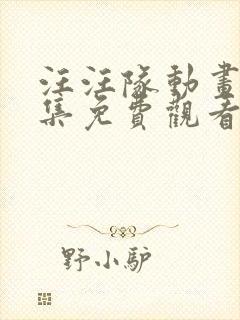 汪汪隊動畫
集免費觀看
野小驴